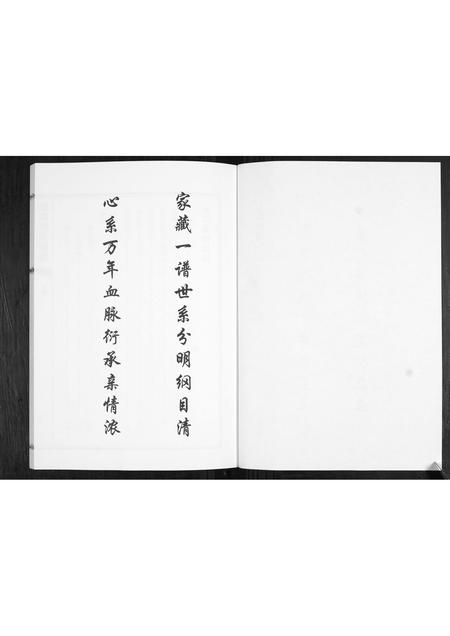 家藏一谱世系分明纲目清
心系万年血脉衍承亲情浓